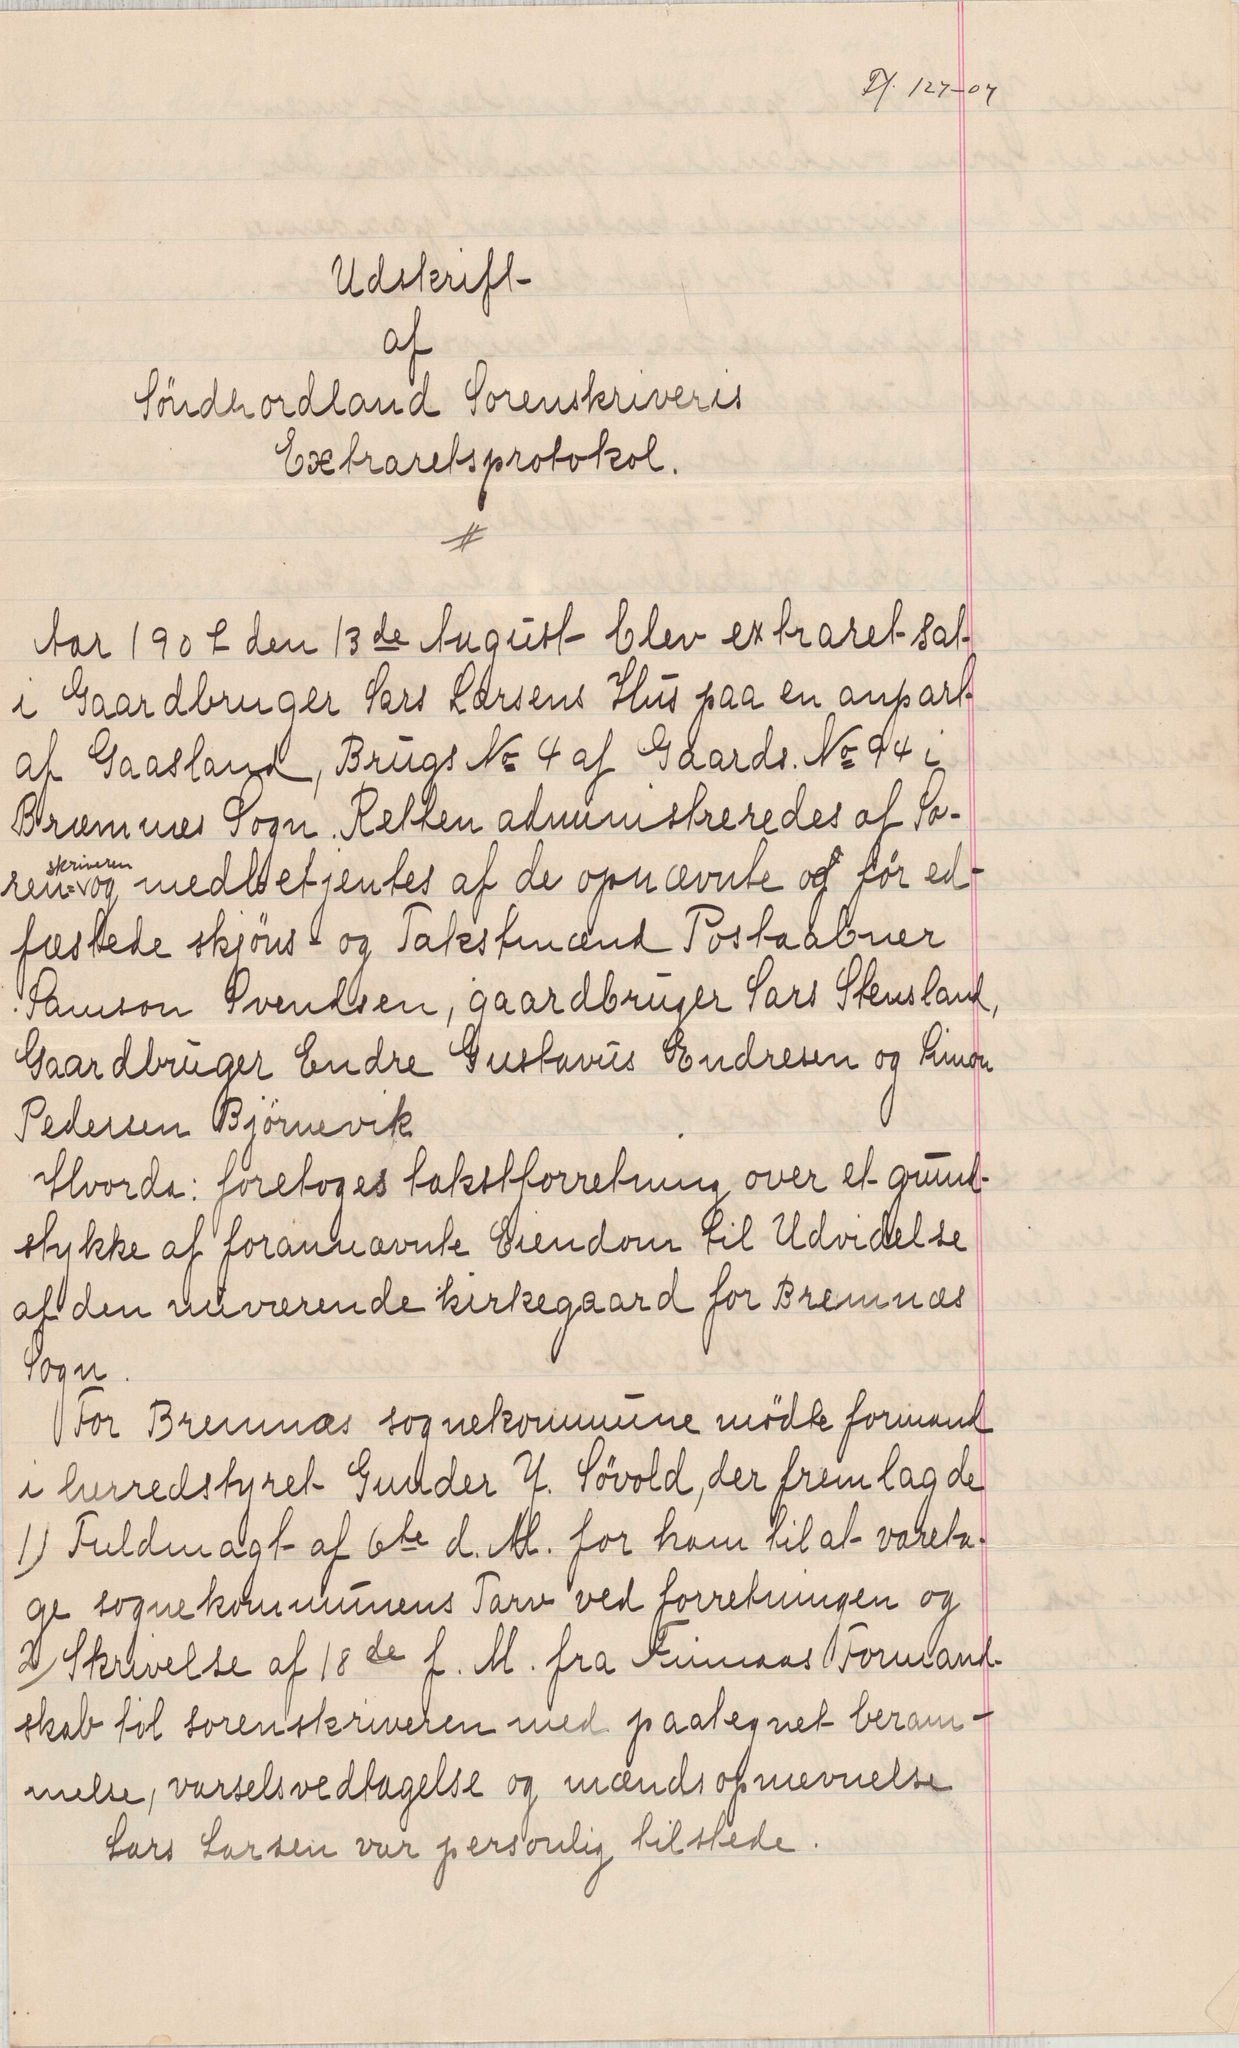 127-07
Udskrift
af
Söndhordland Sorenskriveris
Extraretsprotokol.
Aar 1907 den 13de August blev extraret sat
i Gaardbruger Lars Larsens Hus paa en anpart
af Gaasland, Brugs No 4 af Gaards. No 94 i
Bremnæs Sogn. Retten administreredes af So-
ren- skriveren og medbetjentes af de opnævnte og før ed-
fæstede skjöns- og Takstmænd Postaabner
Samson Svendsen, gaardbruger Lars Stensland,
Gaardbruger Endre Gustavus Endresen og Simon
Pedersen Björnevik
Hvorda: foretoges takstforretning over et grund-
stykke af forannævnte Eiendom til Udvidelse
af den nuværende kirkegaard for Bremnæs
Sogn.
For Bremnæs sognekommune mödte formand
i herredstyret Gunder Y. Sövold, der fremlagde
1) Fuldmagt af 6te d. M. for ham til at vareta-
ge sognekommunens Tarv ved forretningen og
2) Skrivelse af 18de f. M. fra Finnaas Formand-
skab til sorenskriveren med paategnet beram-
melse, varselsvedtagelse og mændsopnævnelse
Lars Larsen var personlig tilstede.